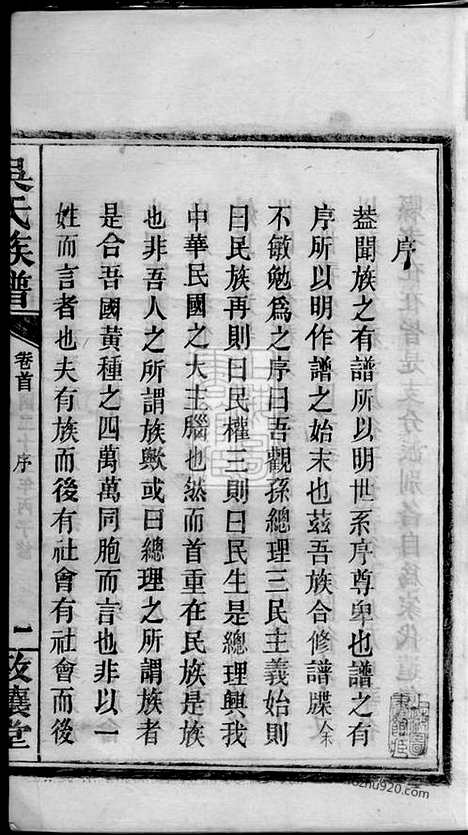 序
葢聞族之有譜所以明世系序尊卑也譜之有
序所以明作譜之始末也茲吾族合修譜牒余未
不敏勉爲之序曰吾觀孫總理三民主義始則
曰民族再則曰民權三則曰民生是總理興我
中華民國之大主腦也然而首重在民族是族
也非吾人之所謂族歟或曰總理之所謂族者
是合吾國黃種之四萬萬同胞而言也非以一
姓而言者也夫有族而後有社會有社會而後
吳氏族譜
卷首
序
一
敦讓堂
ozhu920.com